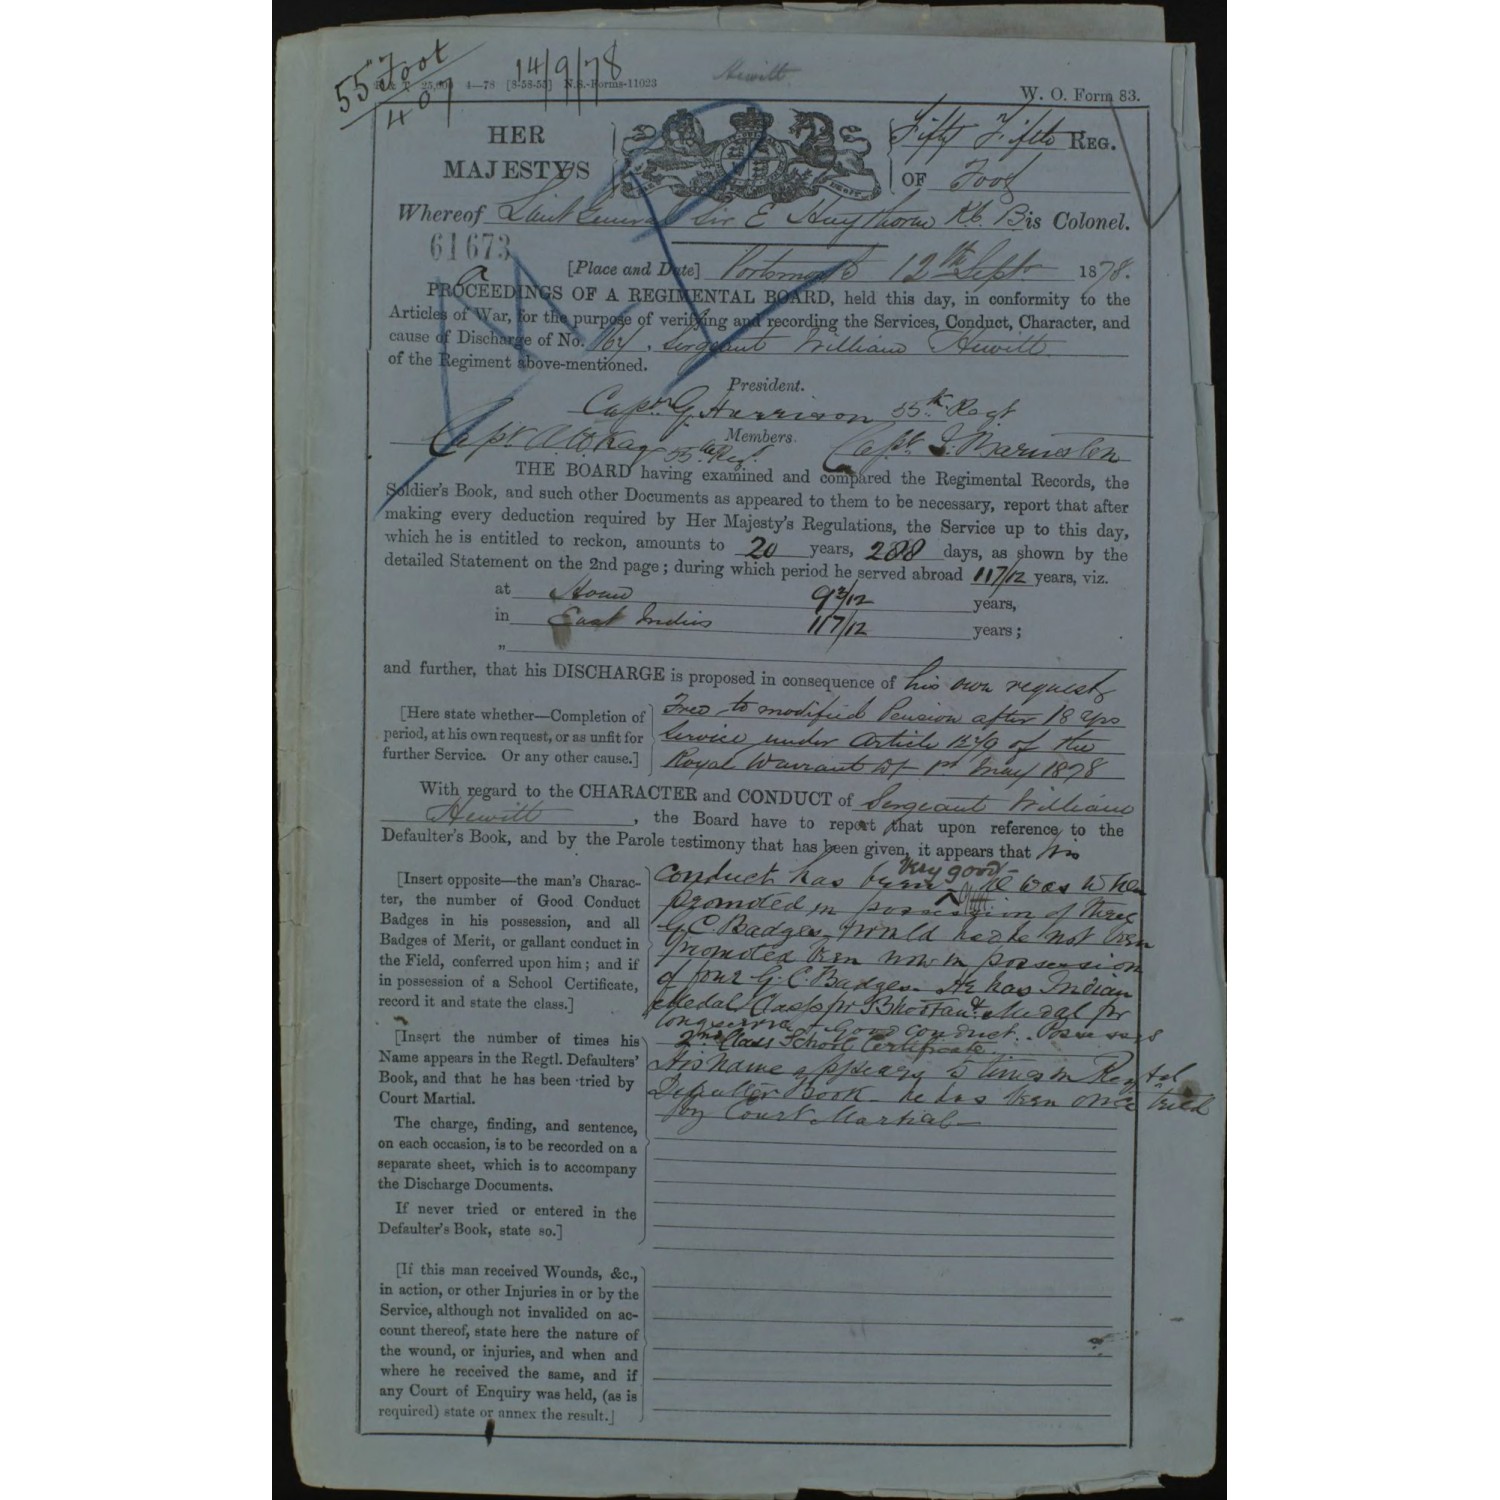 55 Foot
407
14/9/78
Hewitt
25,000 4—78 [8-58-55] N.S.-Forms-11023
W. O. Form 83.
HER
MAJESTY'S
Fifty Fifth REG.
OF Foot
Whereof Lieut General Sir E Haythorne K.C.B is Colonel.
61673
[Place and Date] Portsmouth 12th Sept 1878.
PROCEEDINGS OF A REGIMENTAL BOARD, held this day, in conformity to the
Articles of War, for the purpose of verifying and recording the Services, Conduct, Character, and
cause of Discharge of No. Sergeant William Hewitt
of the Regiment above-mentioned.
President.
Capt G Harrison 55th Regt
Members.
Capt 55th Reg. Capt
THE BOARD having examined and compared the Regimental Records, the
Soldier's Book, and such other Documents as appeared to them to be necessary, report that after
making every deduction required by Her Majesty's Regulations, the Service up to this day,
which he is entitled to reckon, amounts to 20 years, 288 days, as shown by the
detailed Statement on the 2nd page; during which period he served abroad 11 7/12 years, viz.
at Home 9 3/12 years,
in East Indies 11 7/12 years;
"
and further, that his DISCHARGE is proposed in consequence of his own request
[Here state whether—Completion of
period, at his own request, or as unfit for
further Service. Or any other cause.]
Free to modified Pension after 18 yrs
Service under Article of the
Royal Warrant of 1st May 1878
With regard to the CHARACTER and CONDUCT of Sergeant William
Hewitt, the Board have to report that upon reference to the
Defaulter's Book, and by the Parole testimony that has been given, it appears that his
[Insert opposite—the man's Charac-
ter, the number of Good Conduct
Badges in his possession, and all
Badges of Merit, or gallant conduct in
the Field, conferred upon him; and if
in possession of a School Certificate,
record it and state the class.]
conduct has been very good – He was when
promoted in possession of three
G.C. Badges, would had he not been
promoted been now in possession
of four G.C. Badges. He has Indian
Medal Clasp for Bhootan & Medal for
long service & Good conduct. Possesses
2nd Class School Certificate.
[Insert the number of times his
Name appears in the Regtl. Defaulters'
Book, and that he has been tried by
Court Martial.
The charge, finding, and sentence,
on each occasion, is to be recorded on a
separate sheet, which is to accompany
the Discharge Documents.
If never tried or entered in the
Defaulter's Book, state so.]
His name appears 5 times in Regtal
Defaulter Book – he has been once tried
by Court Martial –
[If this man received Wounds, &c.,
in action, or other Injuries in or by the
Service, although not invalided on ac-
count thereof, state here the nature of
the wound, or injuries, and when and
where he received the same, and if
any Court of Enquiry was held, (as is
required) state or annex the result.]